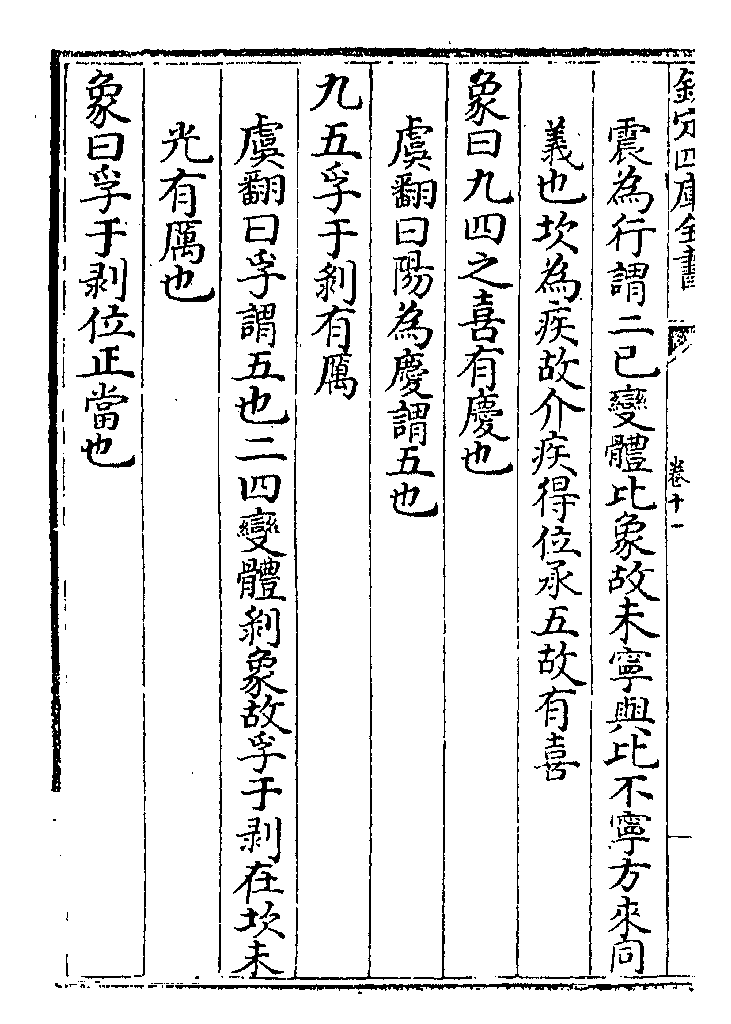 欽定四庫全書
卷十一
震為行謂二已變體比象故未寧與比不寧方來同
義也坎為疾故介疾得位承五故有喜
象曰九四之喜有慶也
虞翻曰陽為慶謂五也
九五孚于剝有厲
虞翻曰孚謂五也二四變體剝象故孚于剝在坎未
光有厲也
象曰孚于剥位正當也